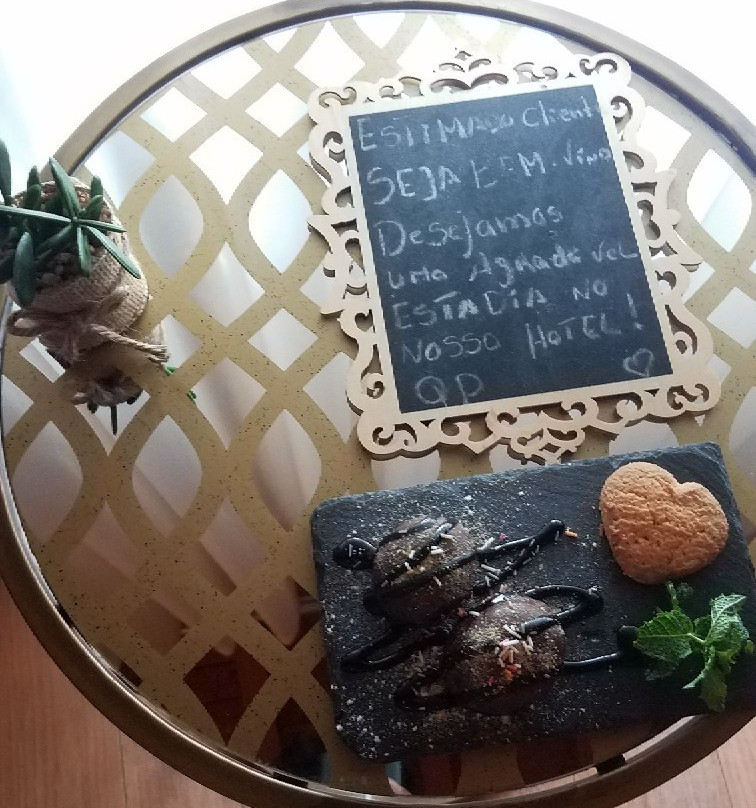 ESTIMADO Cliente
SEJA BEM-Vindo
Desejamos
uma Agradável
ESTADIA NO
NOSSO HOTEL!
QP ♡